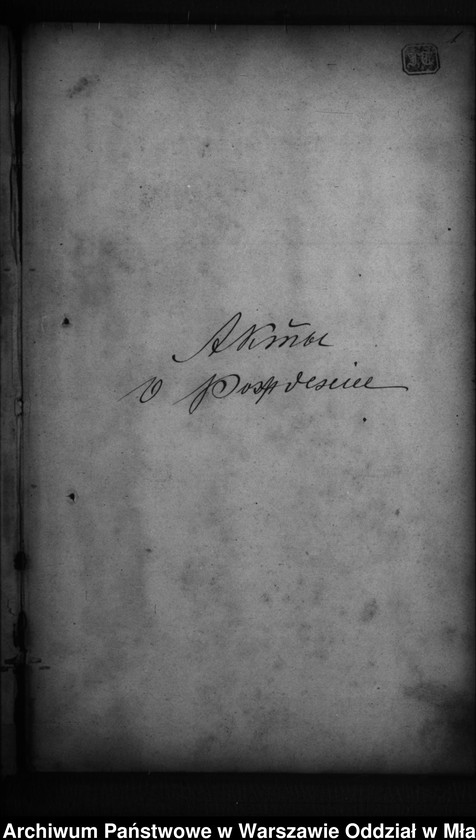 Акты
о Рождении
Archiwum Państwowe w Warszawie Oddział w Mła